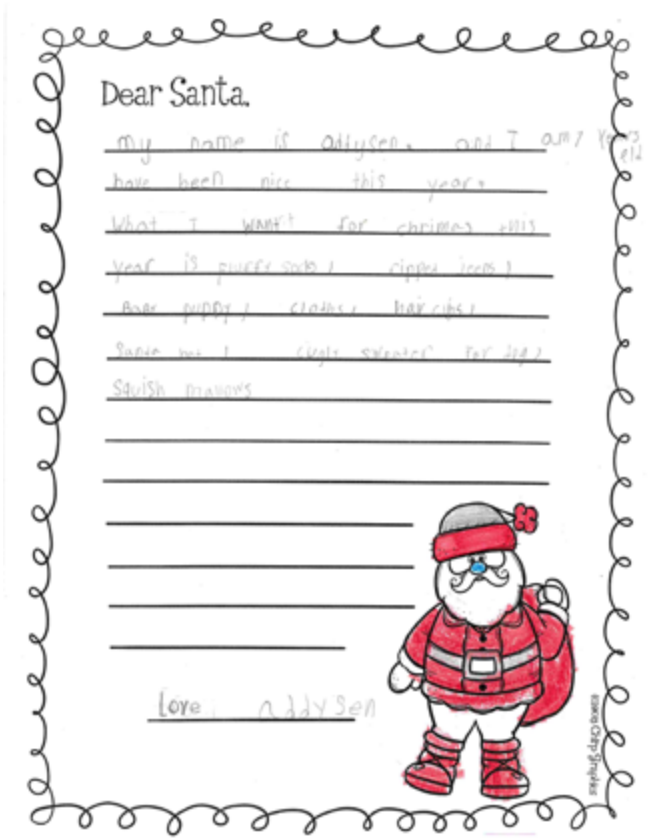 Dear Santa,
my name is addysen, and I am 7 years old
have been nice this year,
What I want for chrimas this
year is pluffy socks, ripped jeens,
Baby puppy, cloths, hair clbs,
Santa hat, ugly sweater for dog,
Squish mallows
love, addysen